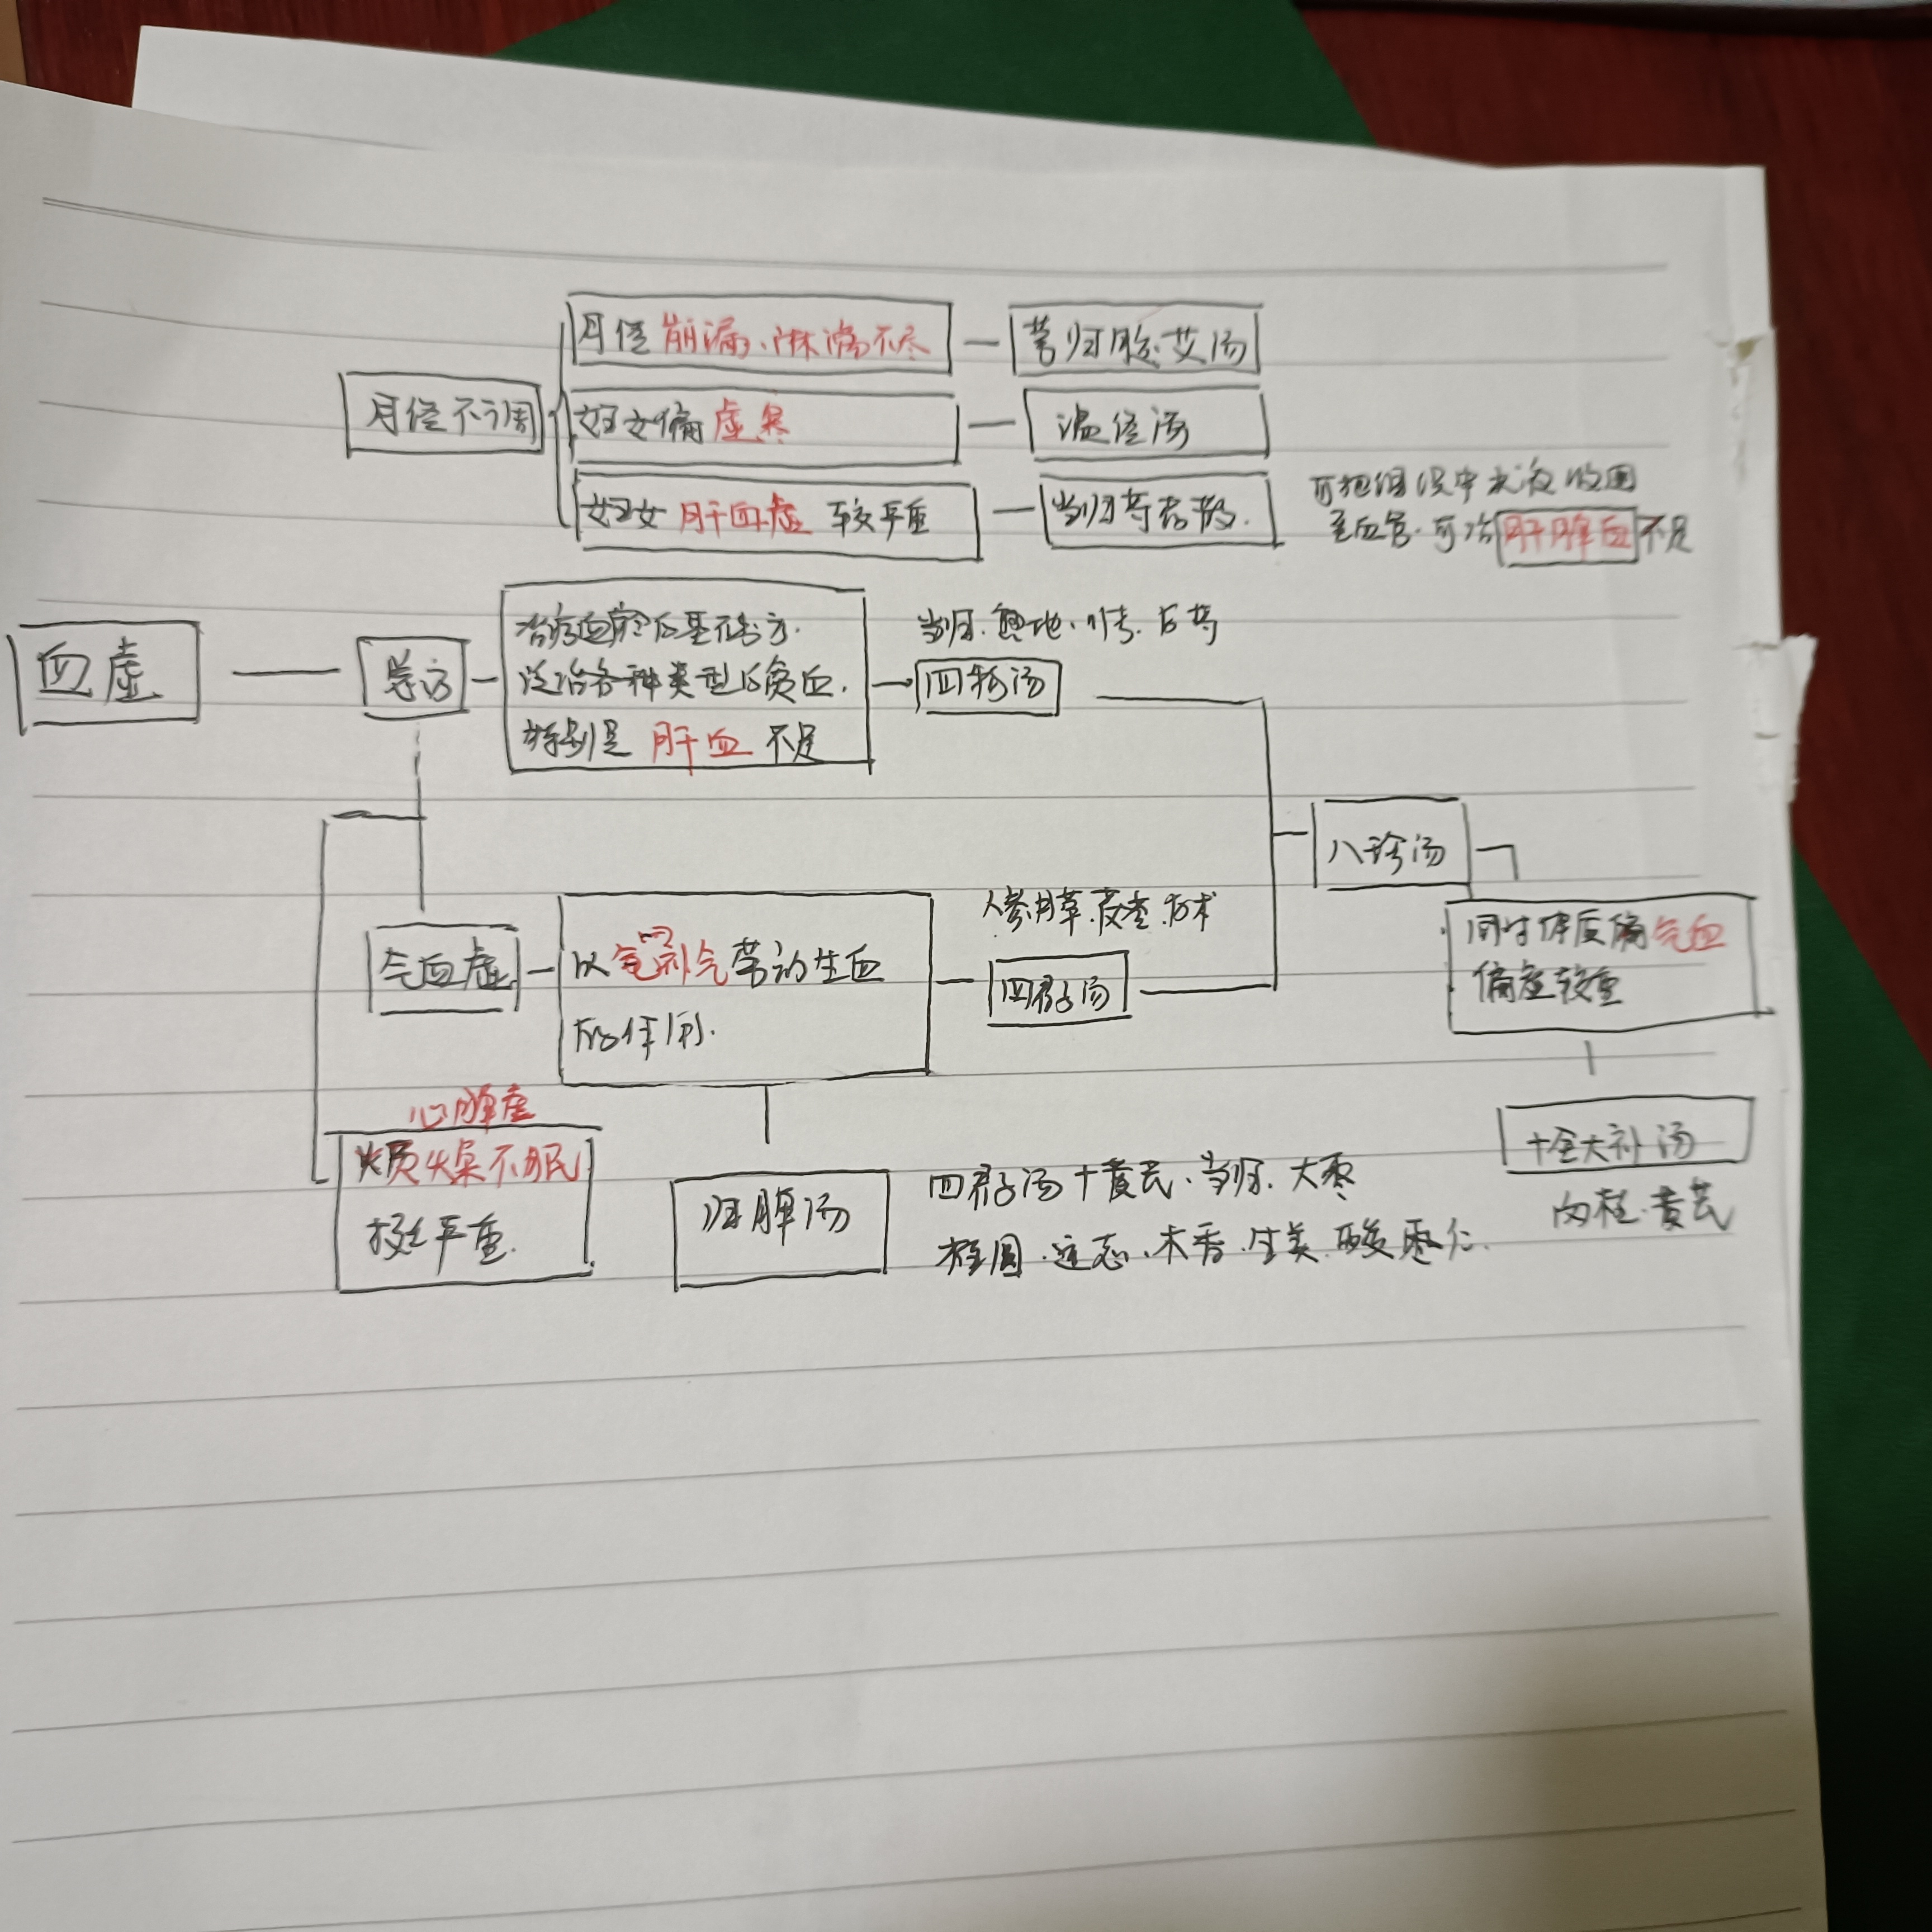 月经崩漏、淋漓不尽
芎归胶艾汤
月经不调
妇女偏虚寒
温经汤
妇女肝血虚较严重
当归芍药散.
可把组织中水液收回
至血管.可治肝脾血不足
血虚
总方
治病血症的基础方.
泛治各种类型的贫血.
特别是肝血不足
当归.熟地、川芎.白芍
四物汤
八珍汤
同时体质偏气血
偏虚较重
十全大补汤
肉桂.黄芪
气血虚
以补气带动生血
的作用.
人参.甘草.茯苓.白术
四君子汤
心脾虚
烦燥不眠
较严重.
归脾汤
四君子汤+黄芪、当归、大枣
桂圆.远志、木香.生姜.酸枣仁.